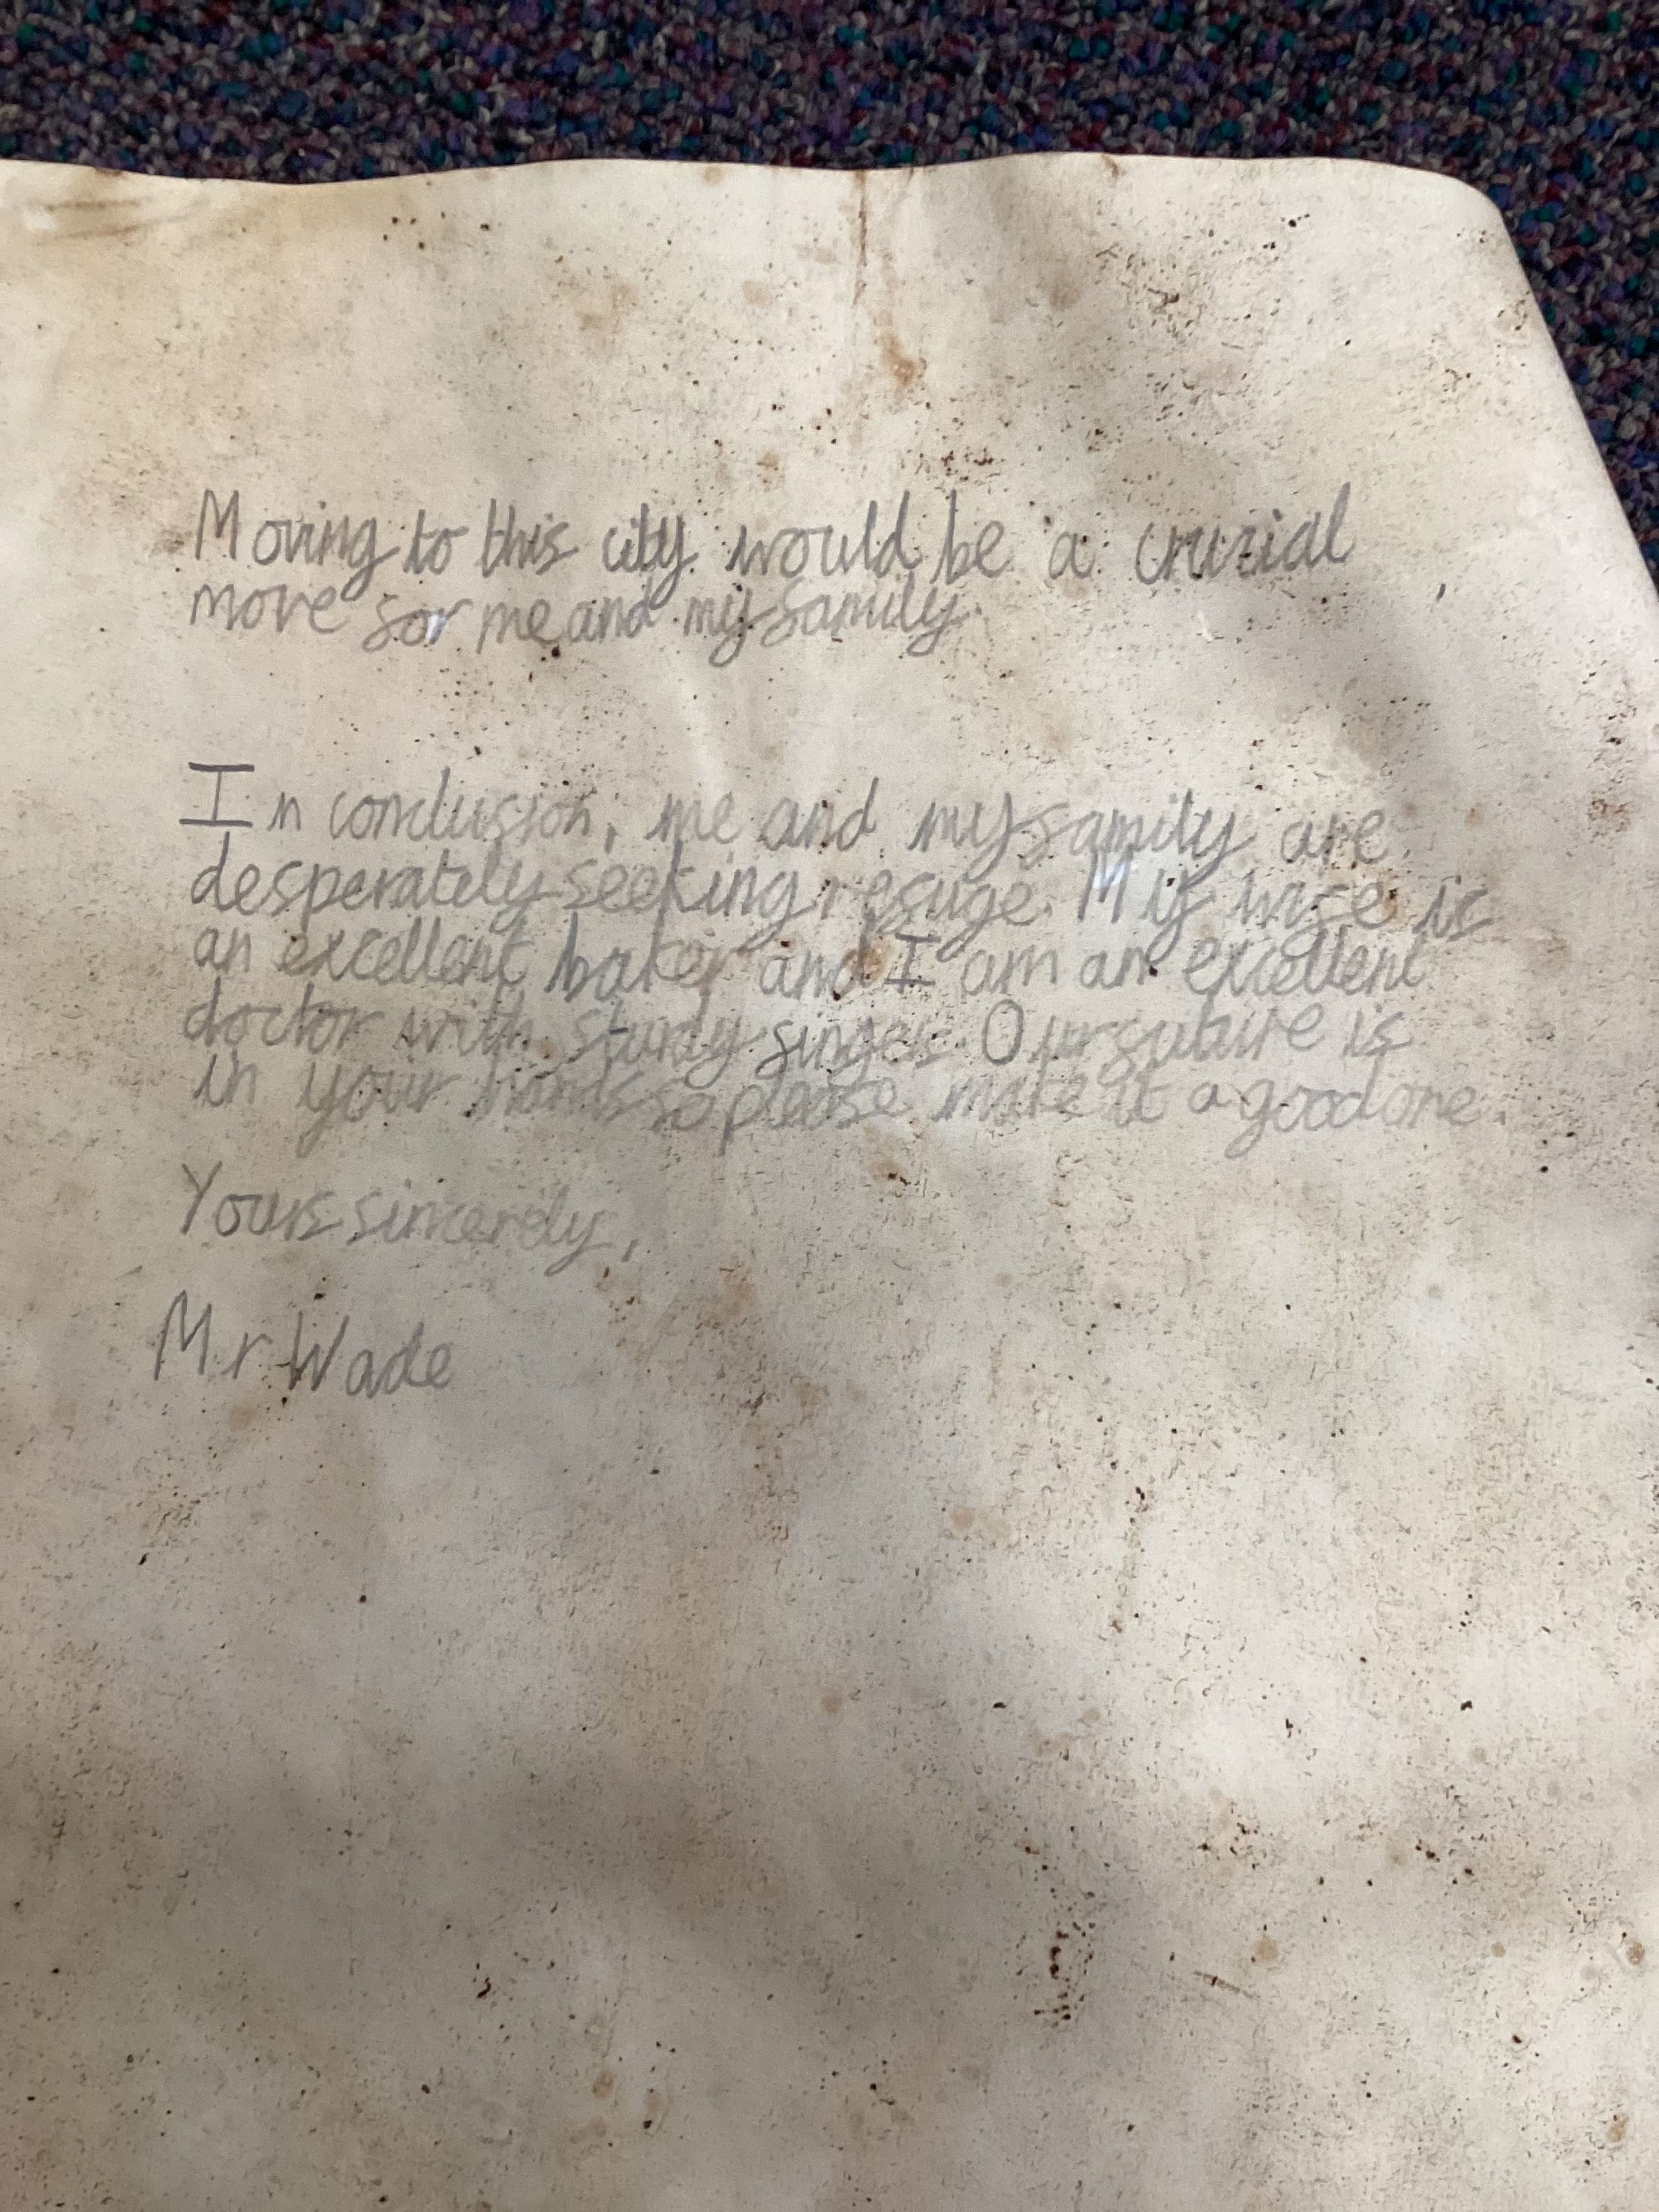 Moving to this city would be a crucial
move for me and my family.
In conclusion, me and my family are
desperately seeking refuge. My wife is
an excellent baker and I am an excellent
doctor with sturdy fingers. Our future is
in your hands so please make it a good one.
Yours sincerely,
Mr Wade